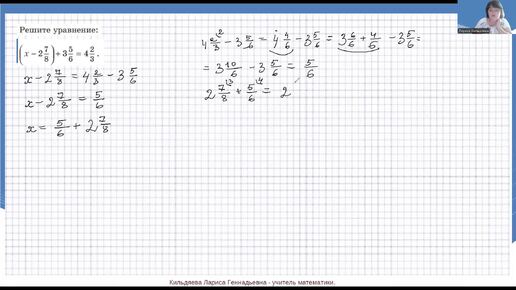 Решите уравнение:
(x − 2 7/8) + 3 5/6 = 4 2/3.
x − 2 7/8 = 4 2/3 − 3 5/6
x − 2 7/8 = 5/6
x = 5/6 + 2 7/8
4 2/3 ² − 3 5/6 = 4 4/6 − 3 5/6 = 3 6/6 + 4/6 − 3 5/6 =
= 3 10/6 − 3 5/6 = 5/6
2 7/8 ⁽³ + 5/6 ⁽⁴ = 2
Кильдяева Лариса Геннадьевна - учитель математики.